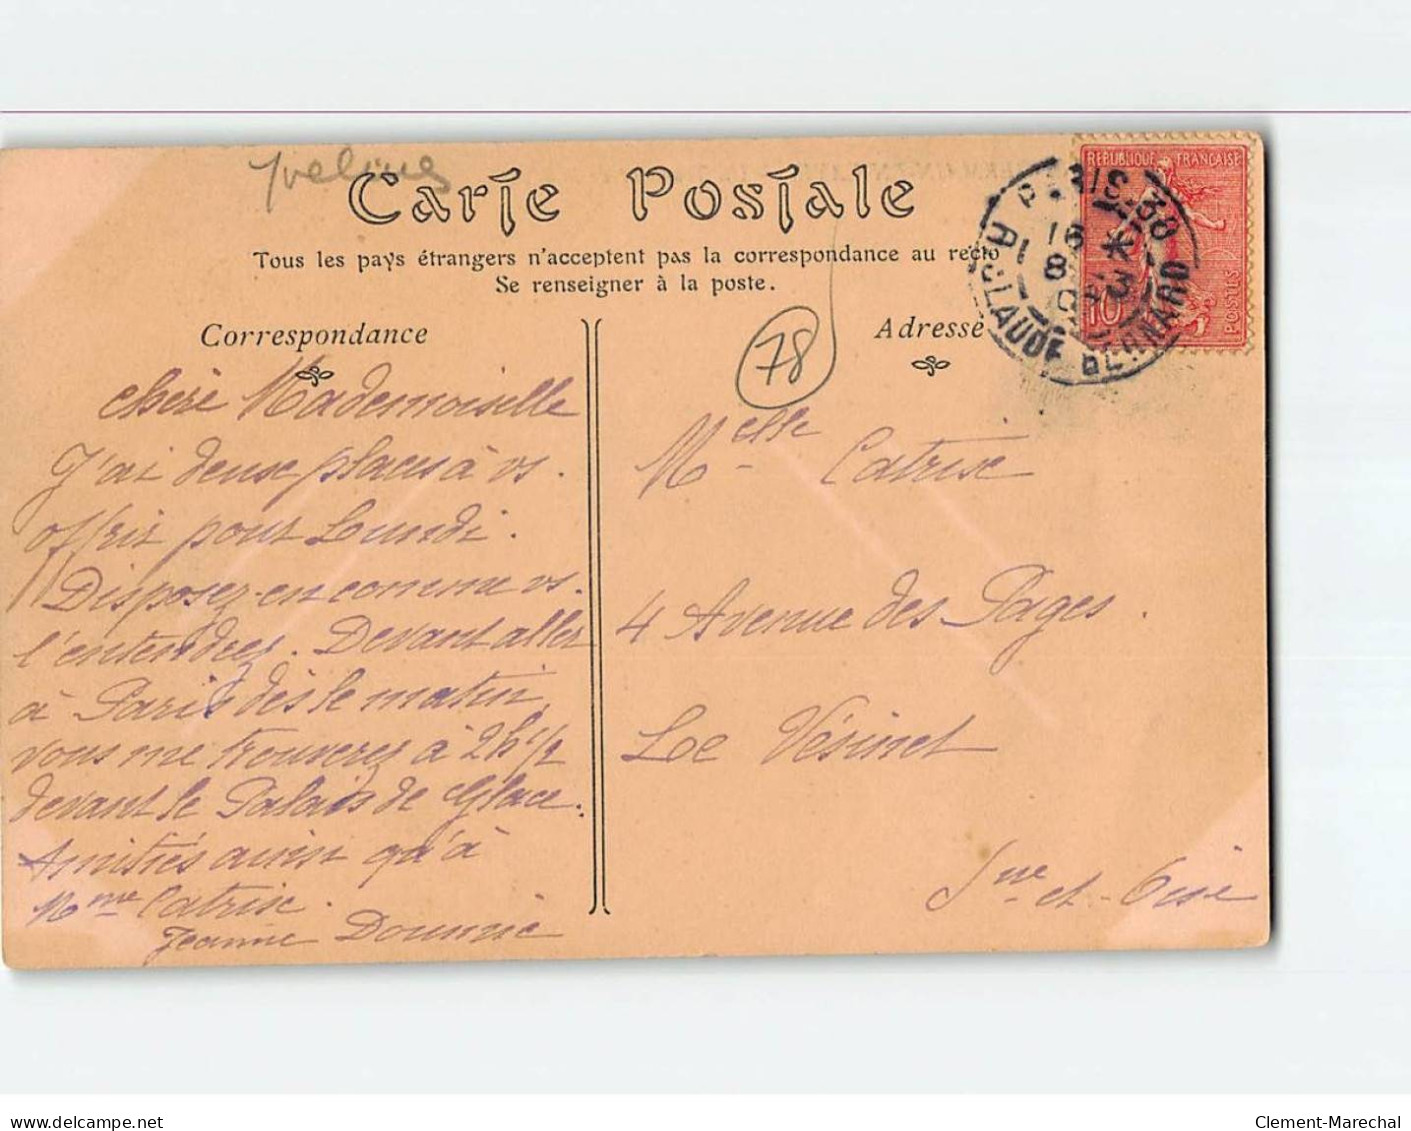 Yvelines
Carte Postale
Tous les pays étrangers n'acceptent pas la correspondance au recto
Se renseigner à la poste.
REPUBLIQUE FRANÇAISE
POSTES
10
PARIS 38
16 * 3
8
R. CLAUDE BERNARD
Correspondance
Adresse
78
Chère Mademoiselle
J'ai deux places à vs.
offrir pour Lundi.
Disposez-en comme vs.
l'entendrez. Devant aller
à Paris dès le matin,
vous me trouverez à 2h 1/2
devant le Palais de Glace.
Amitiés ainsi qu'à
Mme Catrix.
Jeanne
Melle Catrix
4 Avenue des Pages.
Le Vésinet
Sne-et-Oise
www.delcampe.net
Clement-Marechal